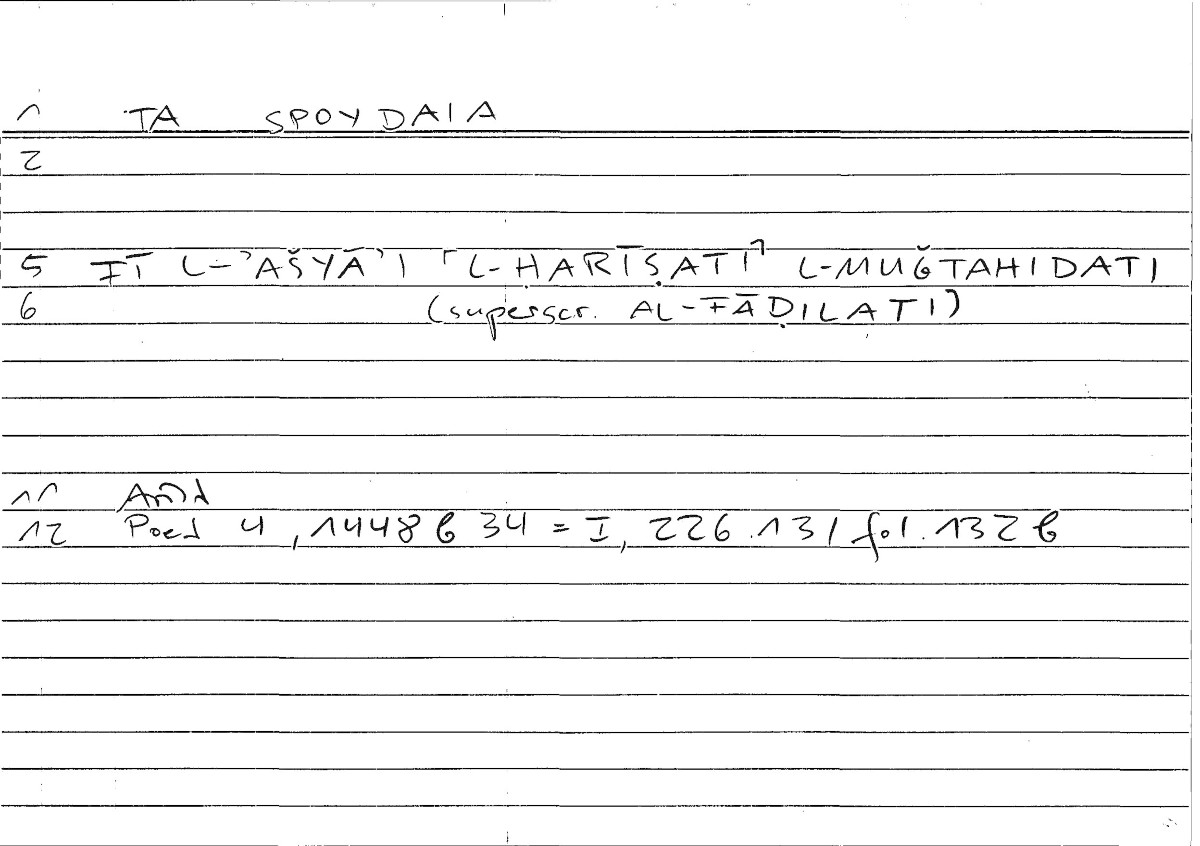 1 TA SPOYDAIA
2
5 FĪ L-ʾAŠYĀʾI ⌜L-ḤARĪṢATI⌝ L-MUǦTAHIDATI
6 (superscr. AL-FĀḌILATI)
11 Arist
12 Poet 4, 1448 b 34 = I, 226.13 / fol. 132 b